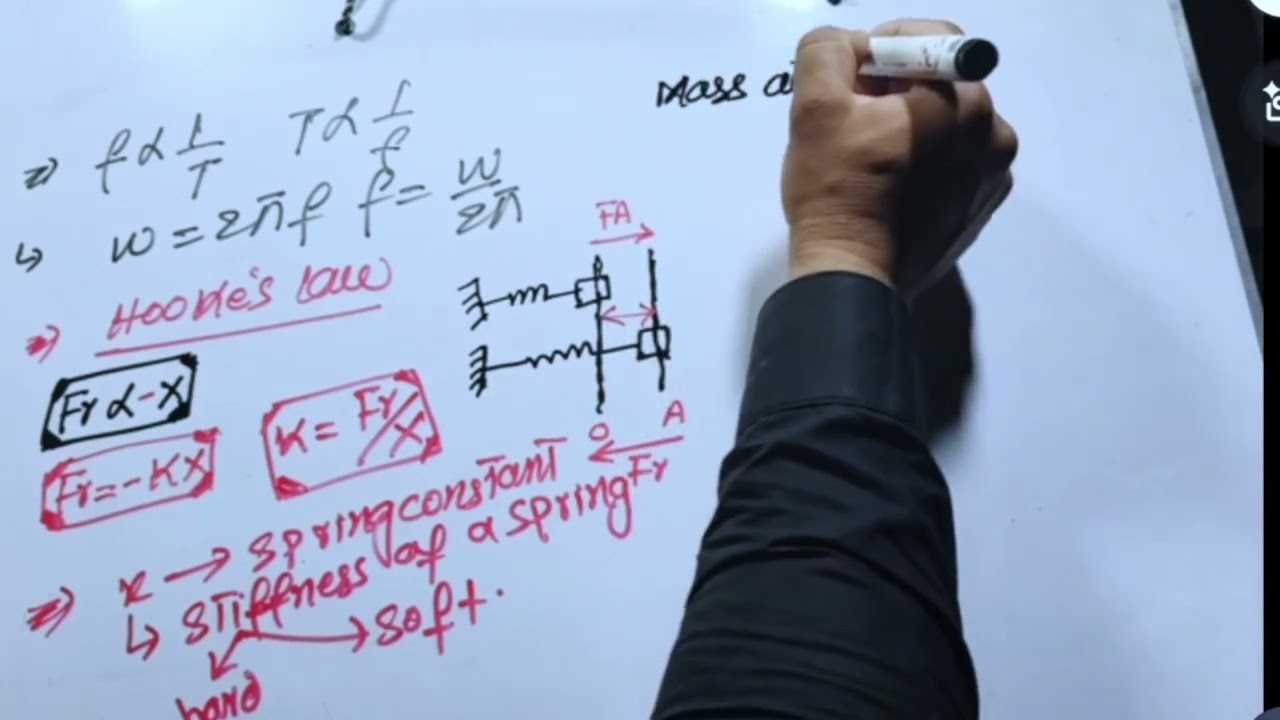 ⇒ f α 1/T T α 1/f
↳ w = 2πf f = w/2π
⇒ Hooke's law
Fr α -X
Fr = -KX
K = Fr/X
FA
O A
Fr
⇒ K → spring constant
↳ stiffness of a spring
→ soft.
hard
Mass a